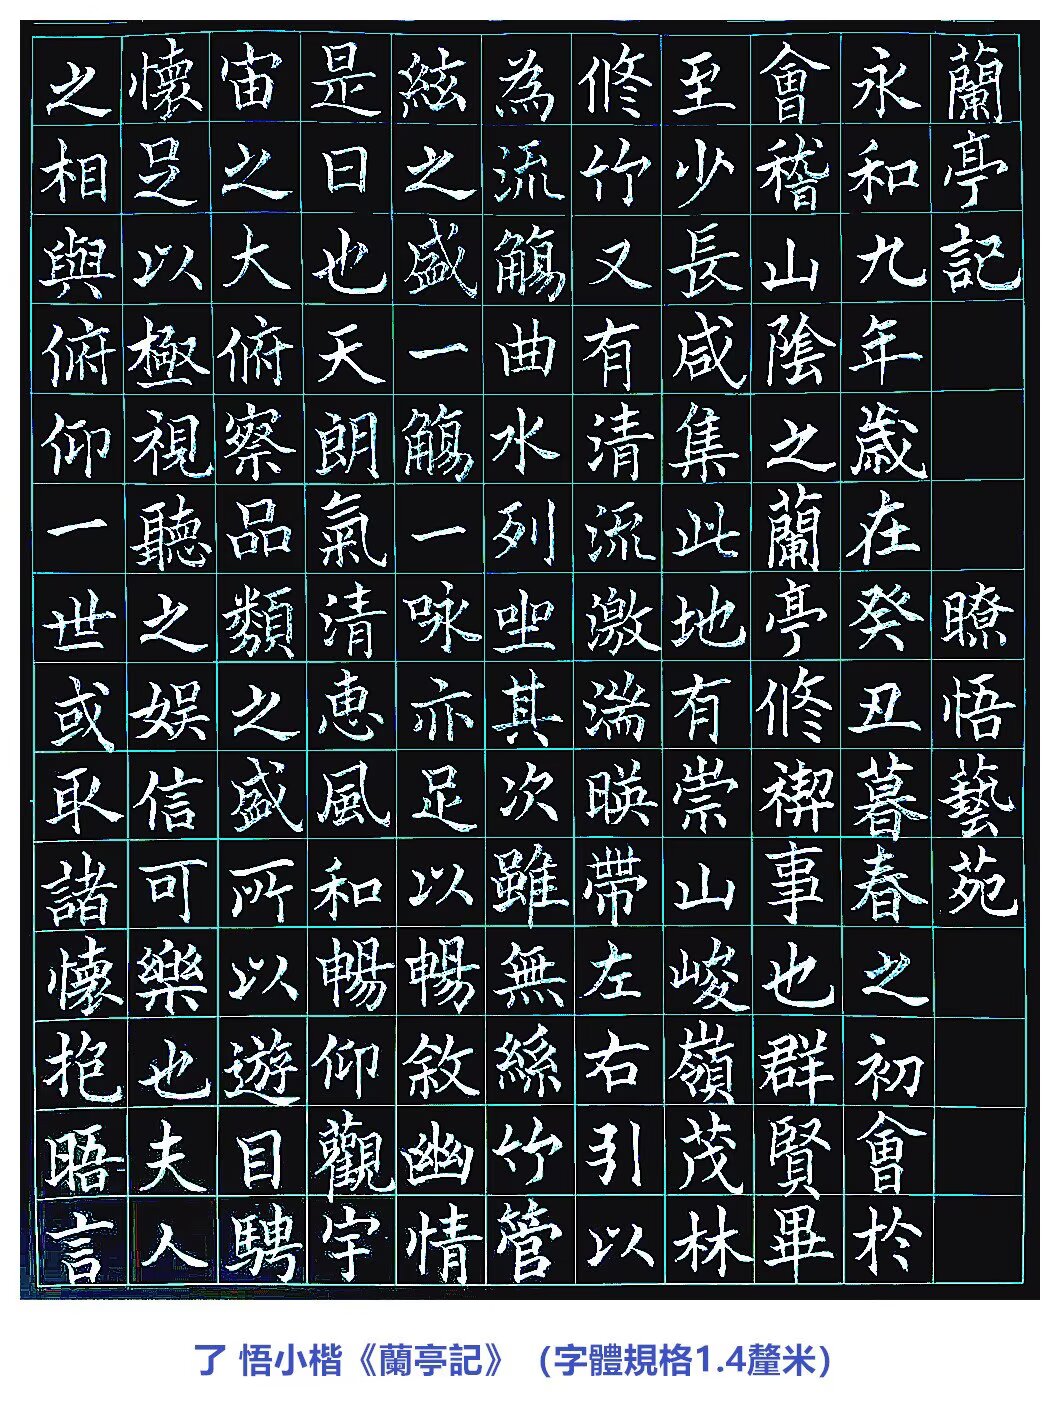 蘭亭記 瞭悟藝苑
永和九年歲在癸丑暮春之初會於
會稽山陰之蘭亭修禊事也群賢畢
至少長咸集此地有崇山峻嶺茂林
修竹又有清流激湍暎帶左右引以
為流觴曲水列坐其次雖無絲竹管
絃之盛一觴一咏亦足以暢敘幽情
是日也天朗氣清恵風和暢仰觀宇
宙之大俯察品類之盛所以遊目騁
懷足以極視聽之娛信可樂也夫人
之相與俯仰一世或取諸懷抱晤言
了 悟小楷《蘭亭記》（字體規格1.4釐米）